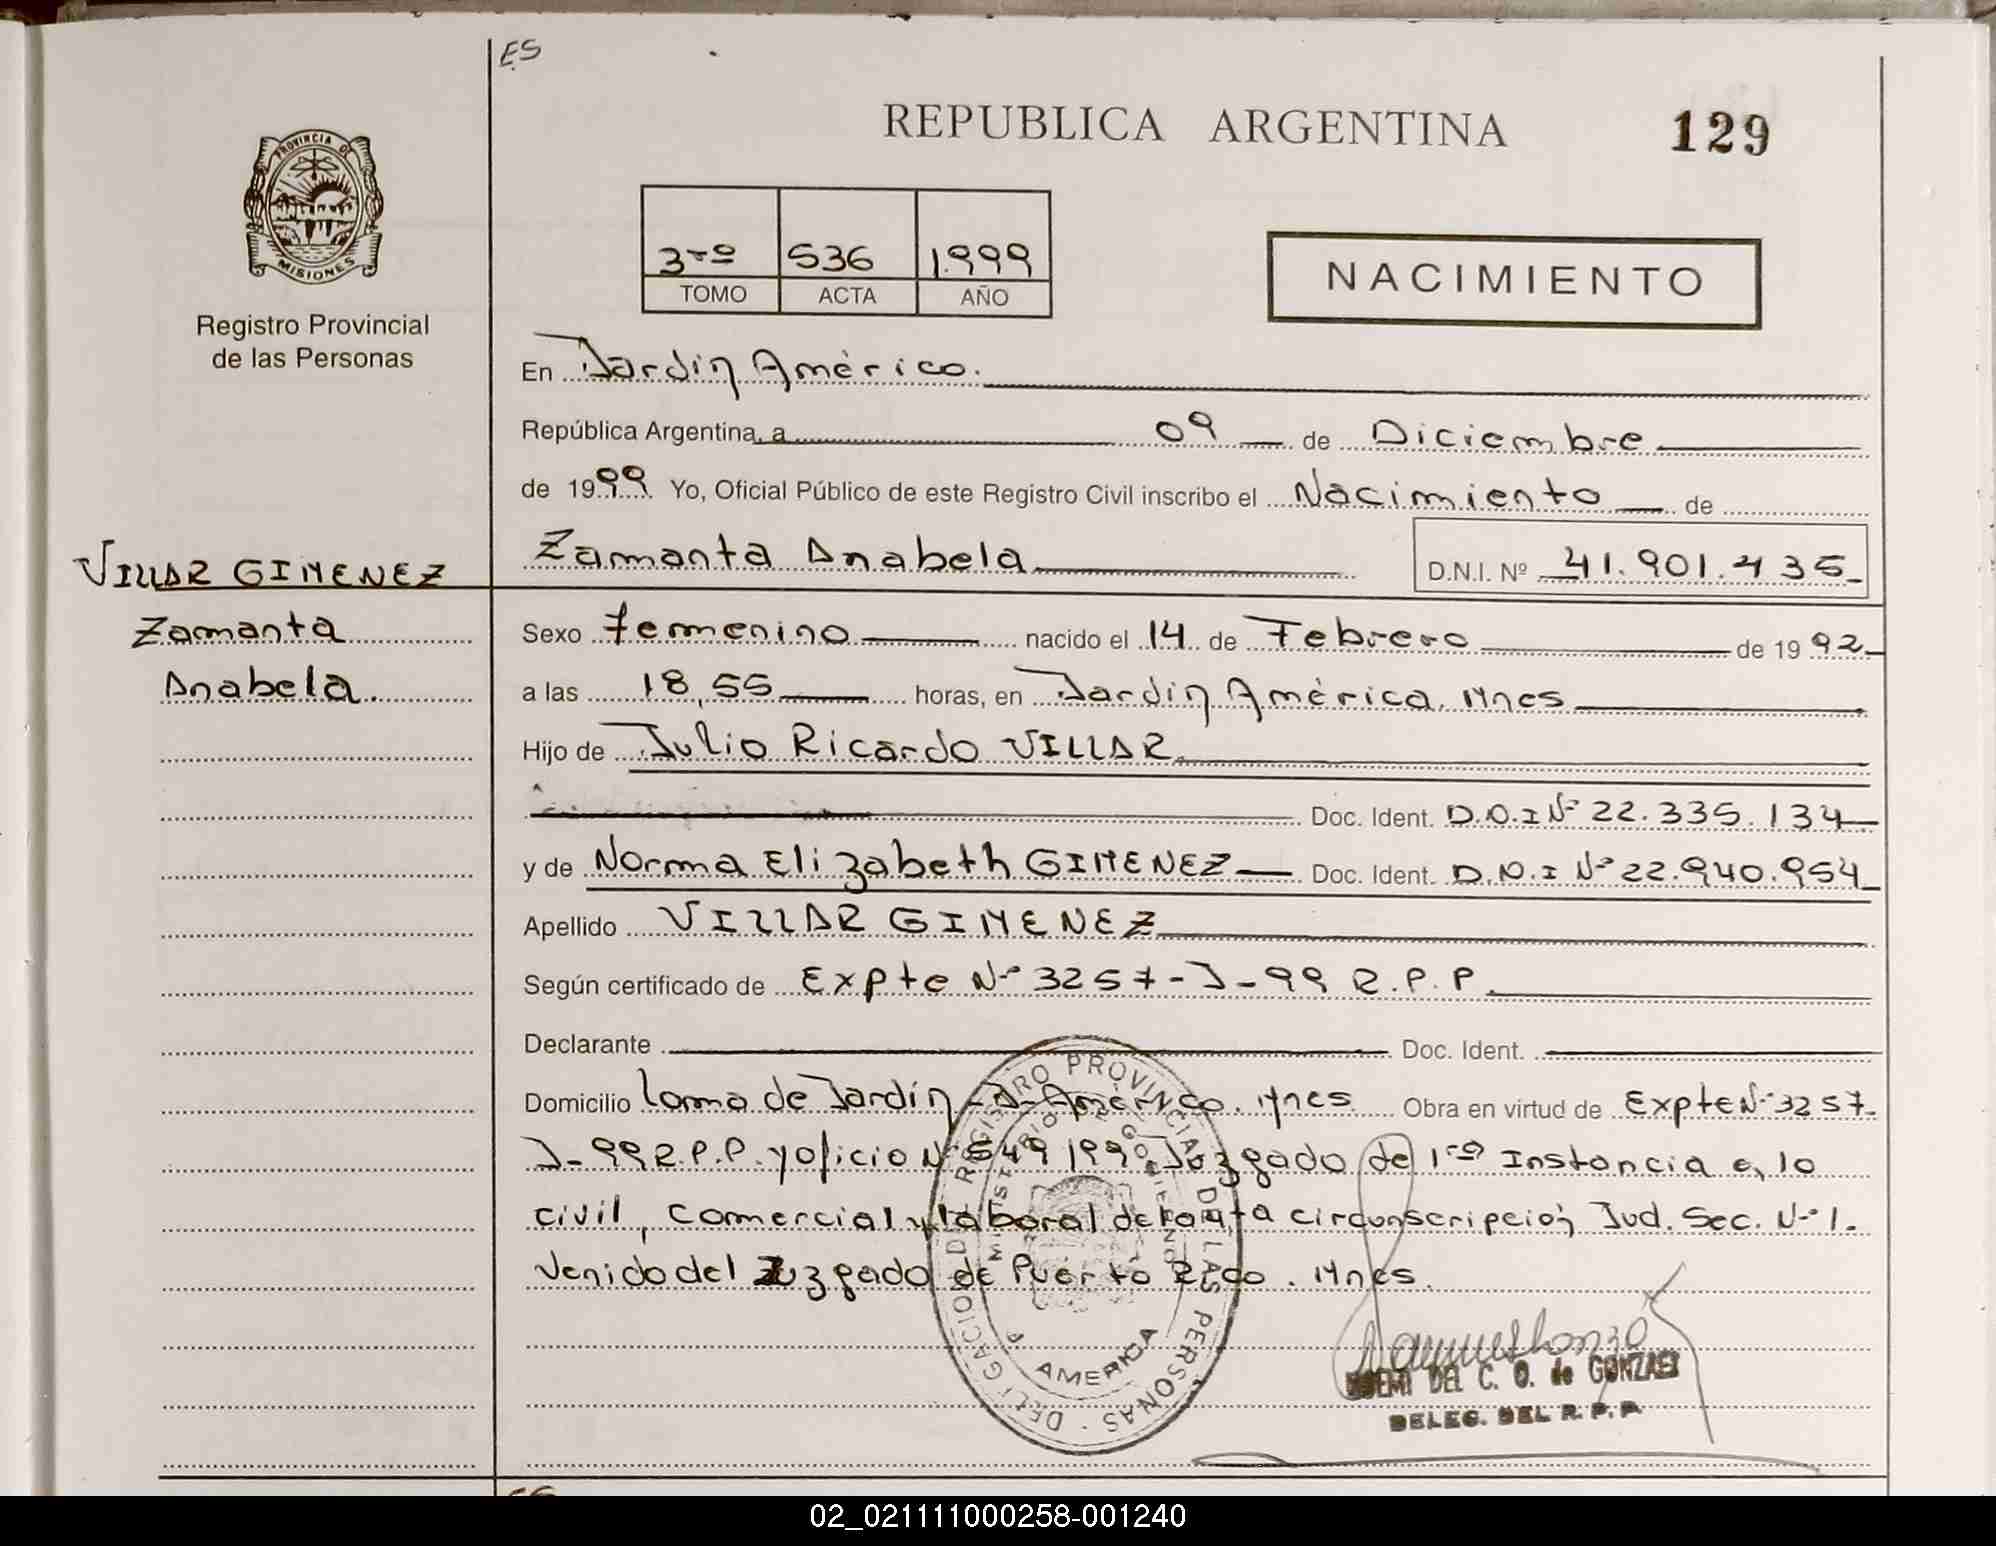 ES
REPUBLICA ARGENTINA
129
PROVINCIA DE
MISIONES
Registro Provincial
de las Personas
3ro 536 1.999
TOMO ACTA AÑO
NACIMIENTO
En Jardín América.
República Argentina, a 09 de Diciembre
de 1999 Yo, Oficial Público de este Registro Civil inscribo el Nacimiento de
VILLAR GIMENEZ
Zamanta Anabela D.N.I. Nº 41.901.435
Zamanta
Sexo Femenino nacido el 14 de Febrero de 1992
Anabela.
a las 18,55 horas, en Jardín América, Mnes
Hijo de Julio Ricardo VILLAR
Doc. Ident. D.N.I Nº 22.335.134
y de Norma Elizabeth GIMENEZ Doc. Ident. D.N.I Nº 22.940.954
Apellido VILLAR GIMENEZ
Según certificado de Expte Nº 3257-J-99 R.P.P.
Declarante Doc. Ident.
Domicilio Loma de Jardín-J-América. Mnes Obra en virtud de Expte Nº 3257
J-99 R.P.P. y oficio Nº 549/99, Juzgado de 1ra Instancia en lo
civil, comercial y laboral de la cuarta circunscripción Jud. Sec. Nº 1.
Venido del Juzgado de Puerto Rico. Mnes.
DELEGACION DE REGISTRO PROVINCIAL DE LAS PERSONAS
MINISTERIO DE GOBIERNO
AMERICA
NOEMI DEL C. O. de GONZALEZ
DELEG. DEL R. P. P.
02_021111000258-001240